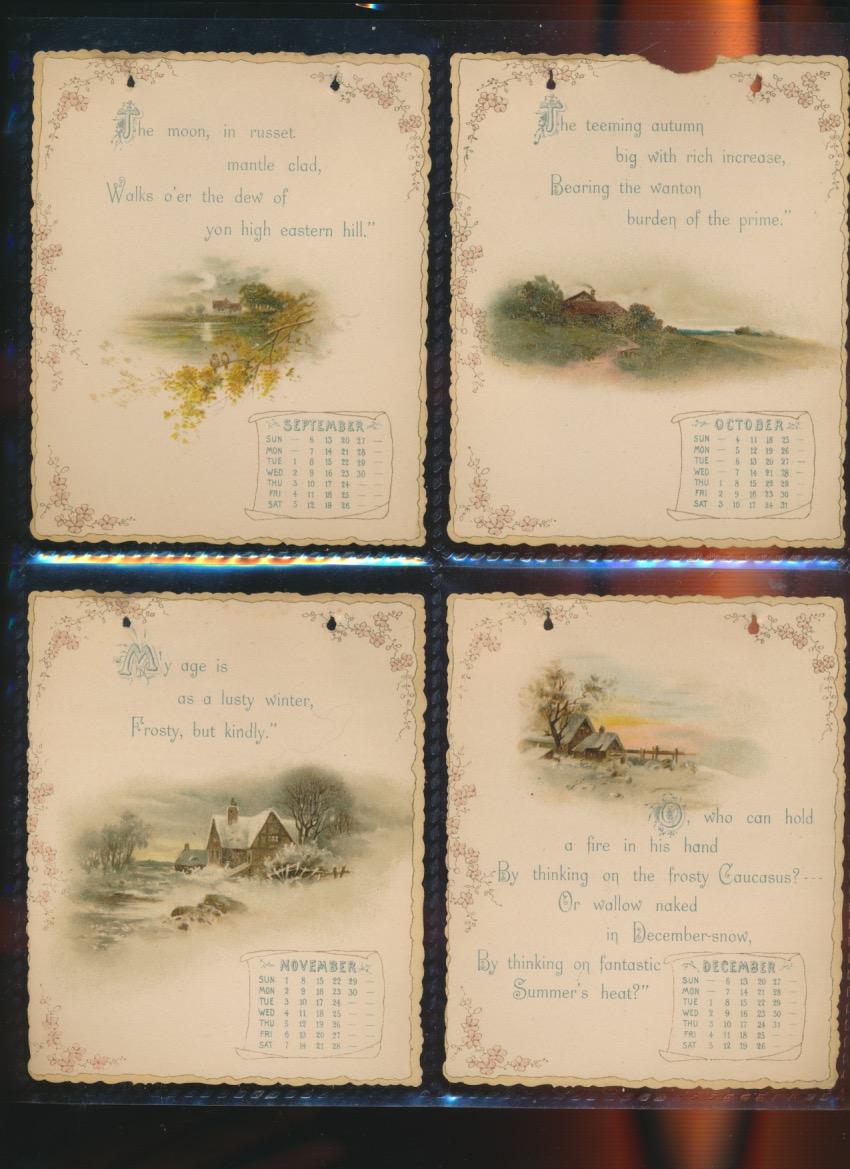 The moon, in russet
mantle clad,
Walks o'er the dew of
yon high eastern hill."
SEPTEMBER
SUN — 6 13 20 27 —
MON — 7 14 21 28 —
TUE 1 8 15 22 29 —
WED 2 9 16 23 30 —
THU 3 10 17 24 — —
FRI 4 11 18 25 — —
SAT 5 12 19 26 — —
The teeming autumn
big with rich increase,
Bearing the wanton
burden of the prime."
OCTOBER
SUN — 4 11 18 25 —
MON — 5 12 19 26 —
TUE — 6 13 20 27 —
WED — 7 14 21 28 —
THU 1 8 15 22 29 —
FRI 2 9 16 23 30 —
SAT 3 10 17 24 31 —
My age is
as a lusty winter,
Frosty, but kindly."
NOVEMBER
SUN 1 8 15 22 29 —
MON 2 9 16 23 30 —
TUE 3 10 17 24 — —
WED 4 11 18 25 — —
THU 5 12 19 26 — —
FRI 6 13 20 27 — —
SAT 7 14 21 28 — —
O, who can hold
a fire in his hand
By thinking on the frosty Caucasus?---
Or wallow naked
in December-snow,
By thinking on fantastic
Summer's heat?"
DECEMBER
SUN — 6 13 20 27 —
MON — 7 14 21 28 —
TUE 1 8 15 22 29 —
WED 2 9 16 23 30 —
THU 3 10 17 24 31 —
FRI 4 11 18 25 — —
SAT 5 12 19 26 — —